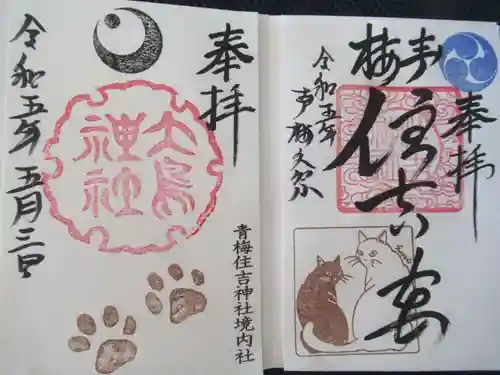 奉拝
青梅
住吉
令和五年
青梅大祭
奉拝
大鳥
神社
令和五年五月三日
青梅住吉神社境内社